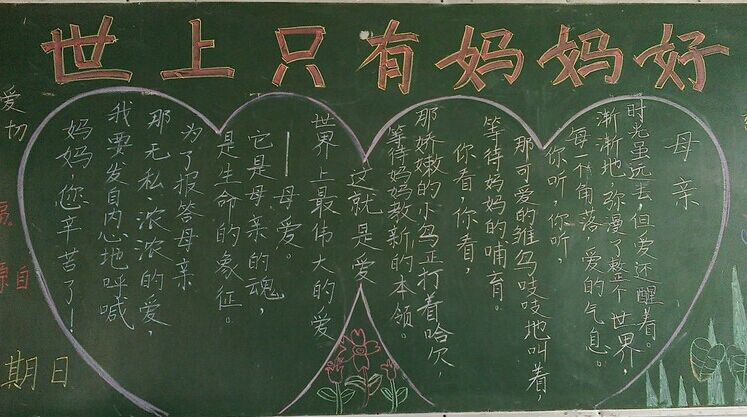 世上只有妈妈好
母亲
时光虽远去,但爱还醒着。
渐渐地,弥漫了整个世界,
每一个角落,爱的气息。
你听,你听,
那可爱的雏鸟吱吱地叫着,
等待妈妈的哺育。
你看,你看,
那娇嫩的小鸟正打着哈欠,
等待妈妈教新的本领。
这就是爱
世界上最伟大的爱
——母爱。
它是母亲的魂,
是生命的象征。
为了报答母亲
那无私、浓浓的爱,
我要发自内心地呼喊
妈妈,您辛苦了!
爱切
期日